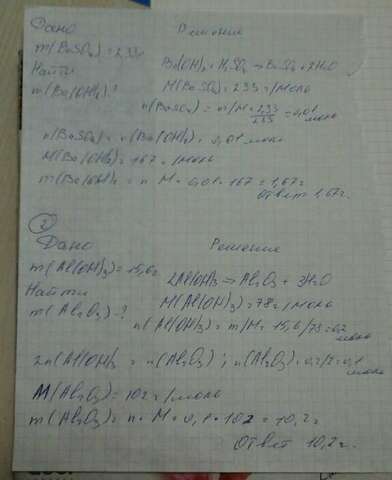 Дано Решение
m(BaSO4) = 2,33г
Найти Ba(OH)2 + H2SO4 → BaSO4 + 2H2O
m(Ba(OH)2)? M(BaSO4) = 233 г/моль
n(BaSO4) = m/M = 2,33/233 = 0,01 моль
n(BaSO4) = n(Ba(OH)2) = 0,01 моль
M(Ba(OH)2) = 167 г/моль
m(Ba(OH)2 = n · M = 0,01 · 167 = 1,67г.
Ответ 1,67г.
2
Дано Решение
m(Al(OH)3) = 15,6г
2Al(OH)3 → Al2O3 + 3H2O
Найти
M(Al(OH)3) = 78 г/моль
m(Al2O3) - ?
n(Al(OH)3) = m/M = 15,6/78 = 0,2 моль
2n(Al(OH)3 = n(Al2O3); n(Al2O3) = 0,2/2 = 0,1 моль
M(Al2O3) = 102 г/моль
m(Al2O3) = n · M = 0,1 · 102 = 10,2г
Ответ 10,2г.